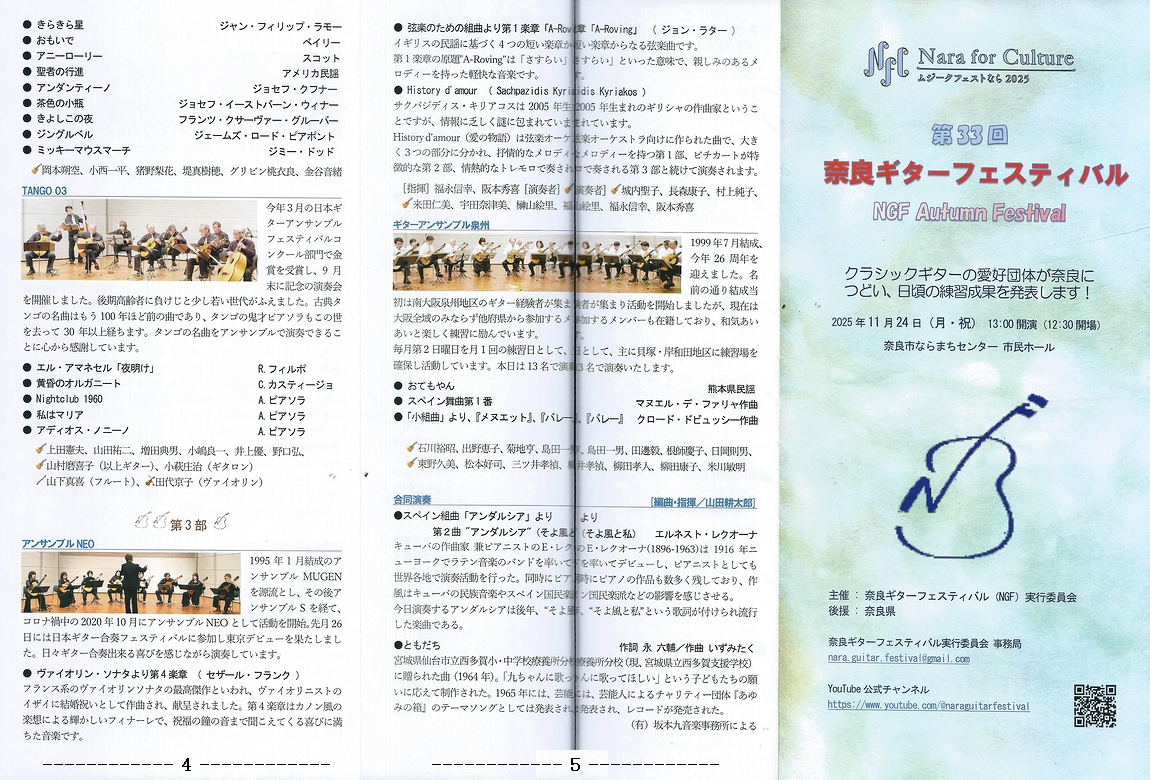 ● きらきら星 ジャン・フィリップ・ラモー
● おもいで ベイリー
● アニーローリー スコット
● 聖者の行進 アメリカ民謡
● アンダンティーノ ジョセフ・クフナー
● 茶色の小瓶 ジョセフ・イーストバーン・ウィナー
● きよしこの夜 フランツ・クサーヴァー・グルーバー
● ジングルベル ジェームズ・ロード・ピアポント
● ミッキーマウスマーチ ジミー・ドッド
岡本朔空、小西一平、猪野梨花、堤真樹徳、グリビン桃衣良、金谷音緒
TANGO 03
今年3月の日本ギ
ターアンサンブル
フェスティバルコ
ンクール部門で金
賞を受賞し、9月
末に記念の演奏会
を開催しました。後期高齢者に負けじと少し若い世代がふえました。古典タ
ンゴの名曲はもう100年ほど前の曲であり、タンゴの鬼才ピアソラもこの世
を去って30年以上経ちます。タンゴの名曲をアンサンブルで演奏できるこ
とに心から感謝しています。
● エル・アマネセル「夜明け」 R.フィルポ
● 黄昏のオルガニート C.カスティージョ
● Nightclub 1960 A.ピアソラ
● 私はマリア A.ピアソラ
● アディオス・ノニーノ A.ピアソラ
上田憲夫、山田祐二、増田典男、小嶋良一、井上優、野口弘、
山村磨喜子(以上ギター)、小萩庄治(ギタロン)
山下真喜(フルート)、田代京子(ヴァイオリン)
第3部
アンサンブルNEO
1995年1月結成のア
ンサンブルMUGEN
を源流とし、その後ア
ンサンブルSを経て、
コロナ禍中の2020年10月にアンサンブルNEOとして活動を開始。先月26
日には日本ギター合奏フェスティバルに参加し東京デビューを果たしまし
た。日々ギター合奏出来る喜びを感じながら演奏しています。
● ヴァイオリン・ソナタより第4楽章 ( セザール・フランク )
フランス系のヴァイオリンソナタの最高傑作といわれ、ヴァイオリニストの
イザイに結婚祝いとして作曲され、献呈されました。第4楽章はカノン風の
楽想による輝かしいフィナーレで、祝福の鐘の音まで聞こえてくる喜びに満
ちた音楽です。
------------ 4 ------------
● 弦楽のための組曲より第1楽章「A-Rov章「A-Roving」 ( ジョン・ラター )
イギリスの民謡に基づく4つの短い楽章か近い楽章からなる弦楽曲です。
第1楽章の原題"A-Roving"は「さすらい」さすらい」といった意味で、親しみのあるメ
ロディーを持った軽快な音楽です。 す。
● History d'amour ( Sachpazidis Kyriazidis Kyriakos )
サクパジディス・キリアコスは2005年生2005年生まれのギリシャの作曲家というこ
とですが、情報に乏しく謎に包まれていまれています。
History d'amour(愛の物語)は弦楽オーケ弦楽オーケストラ向けに作られた曲で、大き
く3つの部分に分かれ、抒情的なメロディメロディーを持つ第1部、ピチカートが特
徴的な第2部、情熱的なトレモロで奏されで奏される第3部と続けて演奏されます。
[指揮] 福永信幸、阪本秀喜 [演奏者] 演奏者] 城内聖子、長森康子、村上純子、
来田仁美、宇田奈津美、榊山絵里、福山絵里、福永信幸、阪本秀喜
ギターアンサンブル泉州
1999年7月結成、
今年26周年を
迎えました。名
前の通り結成当
初は南大阪泉州地区のギター経験者が集ま験者が集まり活動を開始しましたが、現在は
大阪全域のみならず他府県から参加するメ参加するメンバーも在籍しており、和気あい
あいと楽しく練習に励んでいます。 す。
毎月第2日曜日を月1回の練習日として、日として、主に貝塚・岸和田地区に練習場を
確保し活動しています。本日は13名で演3名で演奏いたします。
● おてもやん 熊本県民謡
● スペイン舞曲第1番 マヌエル・デ・ファリャ作曲
● 「小組曲」より、『メヌエット』、『バレー』、『バレー』 クロード・ドビュッシー作曲
石川裕昭、出野恵子、菊地亨、島田一男、島田一男、田邊毅、根師慶子、日岡則男、
東野久美、松本好司、三ツ井孝禎、柳井孝禎、柳田孝人、柳田康子、米川敏明
合同演奏 [編曲・指揮/山田耕太郎]
●スペイン組曲「アンダルシア」より より
第2曲 "アンダルシア"(そよ風と(そよ風と私) エルネスト・レクオーナ
キューバの作曲家 兼ピアニストのE・レクのE・レクオーナ(1896-1963)は 1916年ニ
ューヨークでラテン音楽のバンドを率いてドを率いてデビューし、ピアニストとしても
世界各地で演奏活動を行った。同時にピア時にピアノの作品も数多く残しており、作
風はキューバの民族音楽やスペイン国民楽イン国民楽派などの影響を感じさせる。
今日演奏するアンダルシアは後年、“そよ風ミ、“そよ風と私”という歌詞が付けられ流行
した楽曲である。
●ともだち 作詞 永 六輔/作曲 いずみたく
宮城県仙台市立西多賀小・中学校療養所分校療養所分校(現、宮城県立西多賀支援学校)
に贈られた曲(1964年)。「九ちゃんに歌っんに歌ってほしい」という子どもたちの願
いに応えて制作された。1965年には、芸能には、芸能人によるチャリティー団体『あゆ
みの箱』のテーマソングとしては発表され発表され、レコードが発売された。
(有)坂本九音楽事務所による
------------ 5 ------------
Nara for Culture
ムジークフェストなら 2025
第33回
奈良ギターフェスティバル
NGF Autumn Festival
クラシックギターの愛好団体が奈良に
つどい、日頃の練習成果を発表します!
2025年11月24日(月・祝) 13:00開演(12:30開場)
奈良市ならまちセンター 市民ホール
主催 : 奈良ギターフェスティバル(NGF)実行委員会
後援 : 奈良県
奈良ギターフェスティバル実行委員会 事務局
nara.guitar.festival@gmail.com
YouTube 公式チャンネル
https://www.youtube.com/@naraguitarfestival